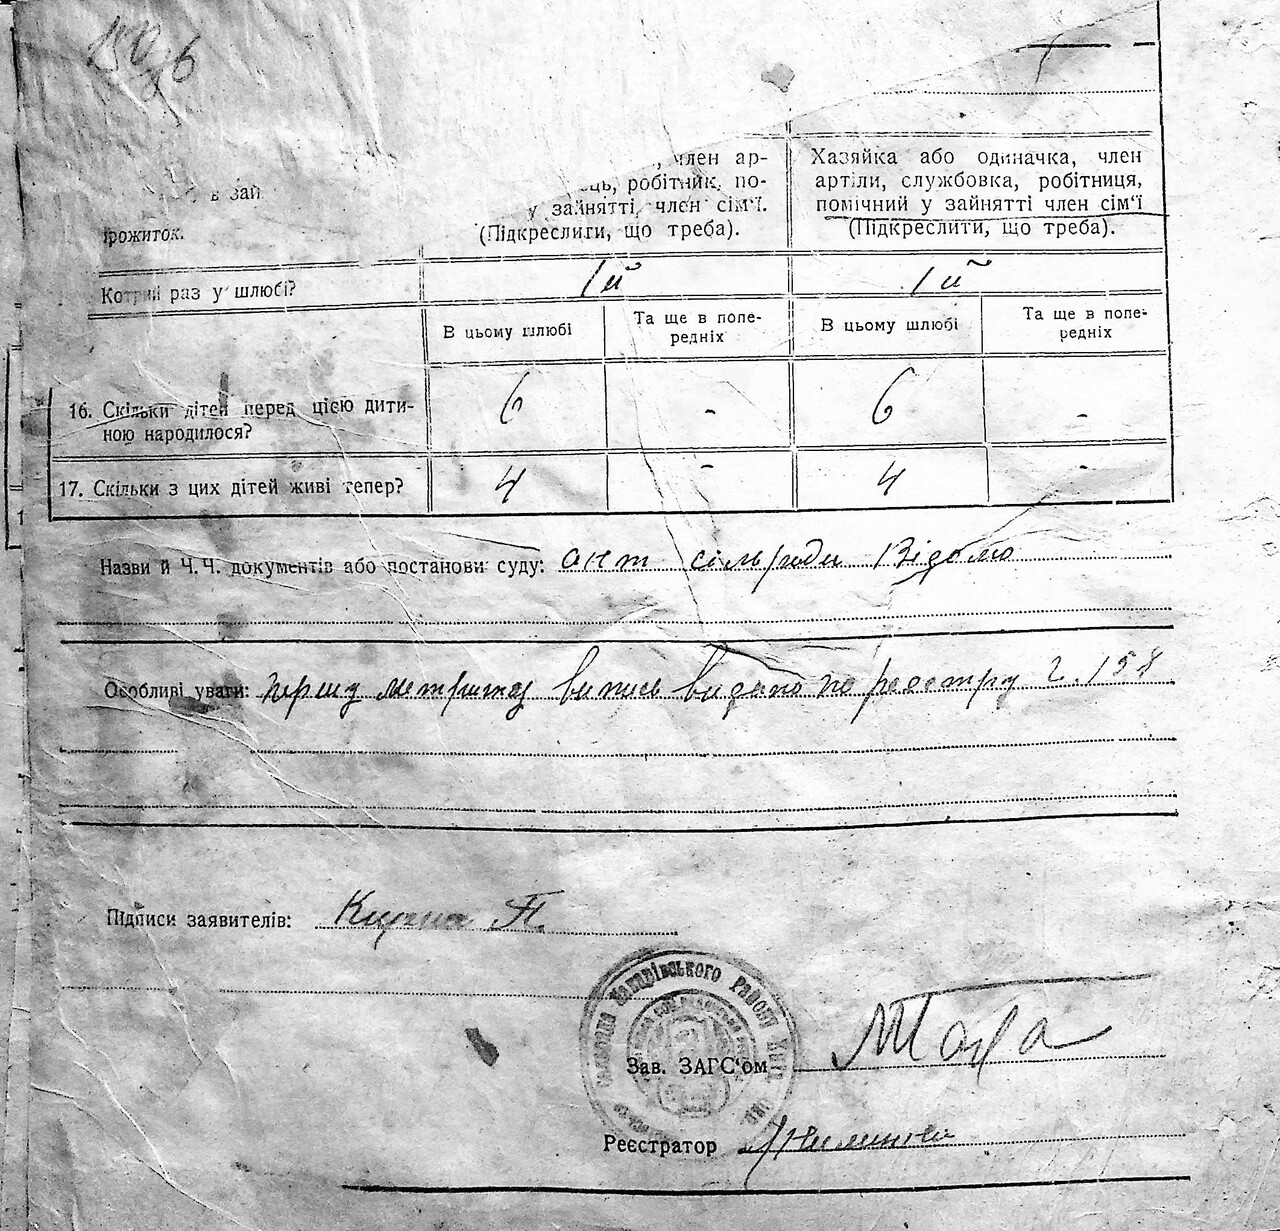 член ар-
робітник, по-
у зайнятті, член сім'ї.
(Підкреслити, що треба).
в зай
прожиток.
Хазяйка або одиначка, член
артіли, службовка, робітниця,
помічний у зайнятті член сім'ї
(Підкреслити, що треба).
Котрий раз у шлюбі? 1й 1й
В цьому шлюбі
Та ще в попе-
редніх
В цьому шлюбі
Та ще в попе-
редніх
16. Скільки дітей перед цією дити-
ною народилося?
6 - 6 -
17. Скільки з цих дітей живі тепер? 4 - 4 -
Назви й Ч.Ч. документів або постанови суду: акт сільради Відомо
Особливі уваги: першу метричну випись видано по реєстру Ч. 158
Підписи заявителів:
Макарівського Району
Зав. ЗАГС'ом
Реєстратор